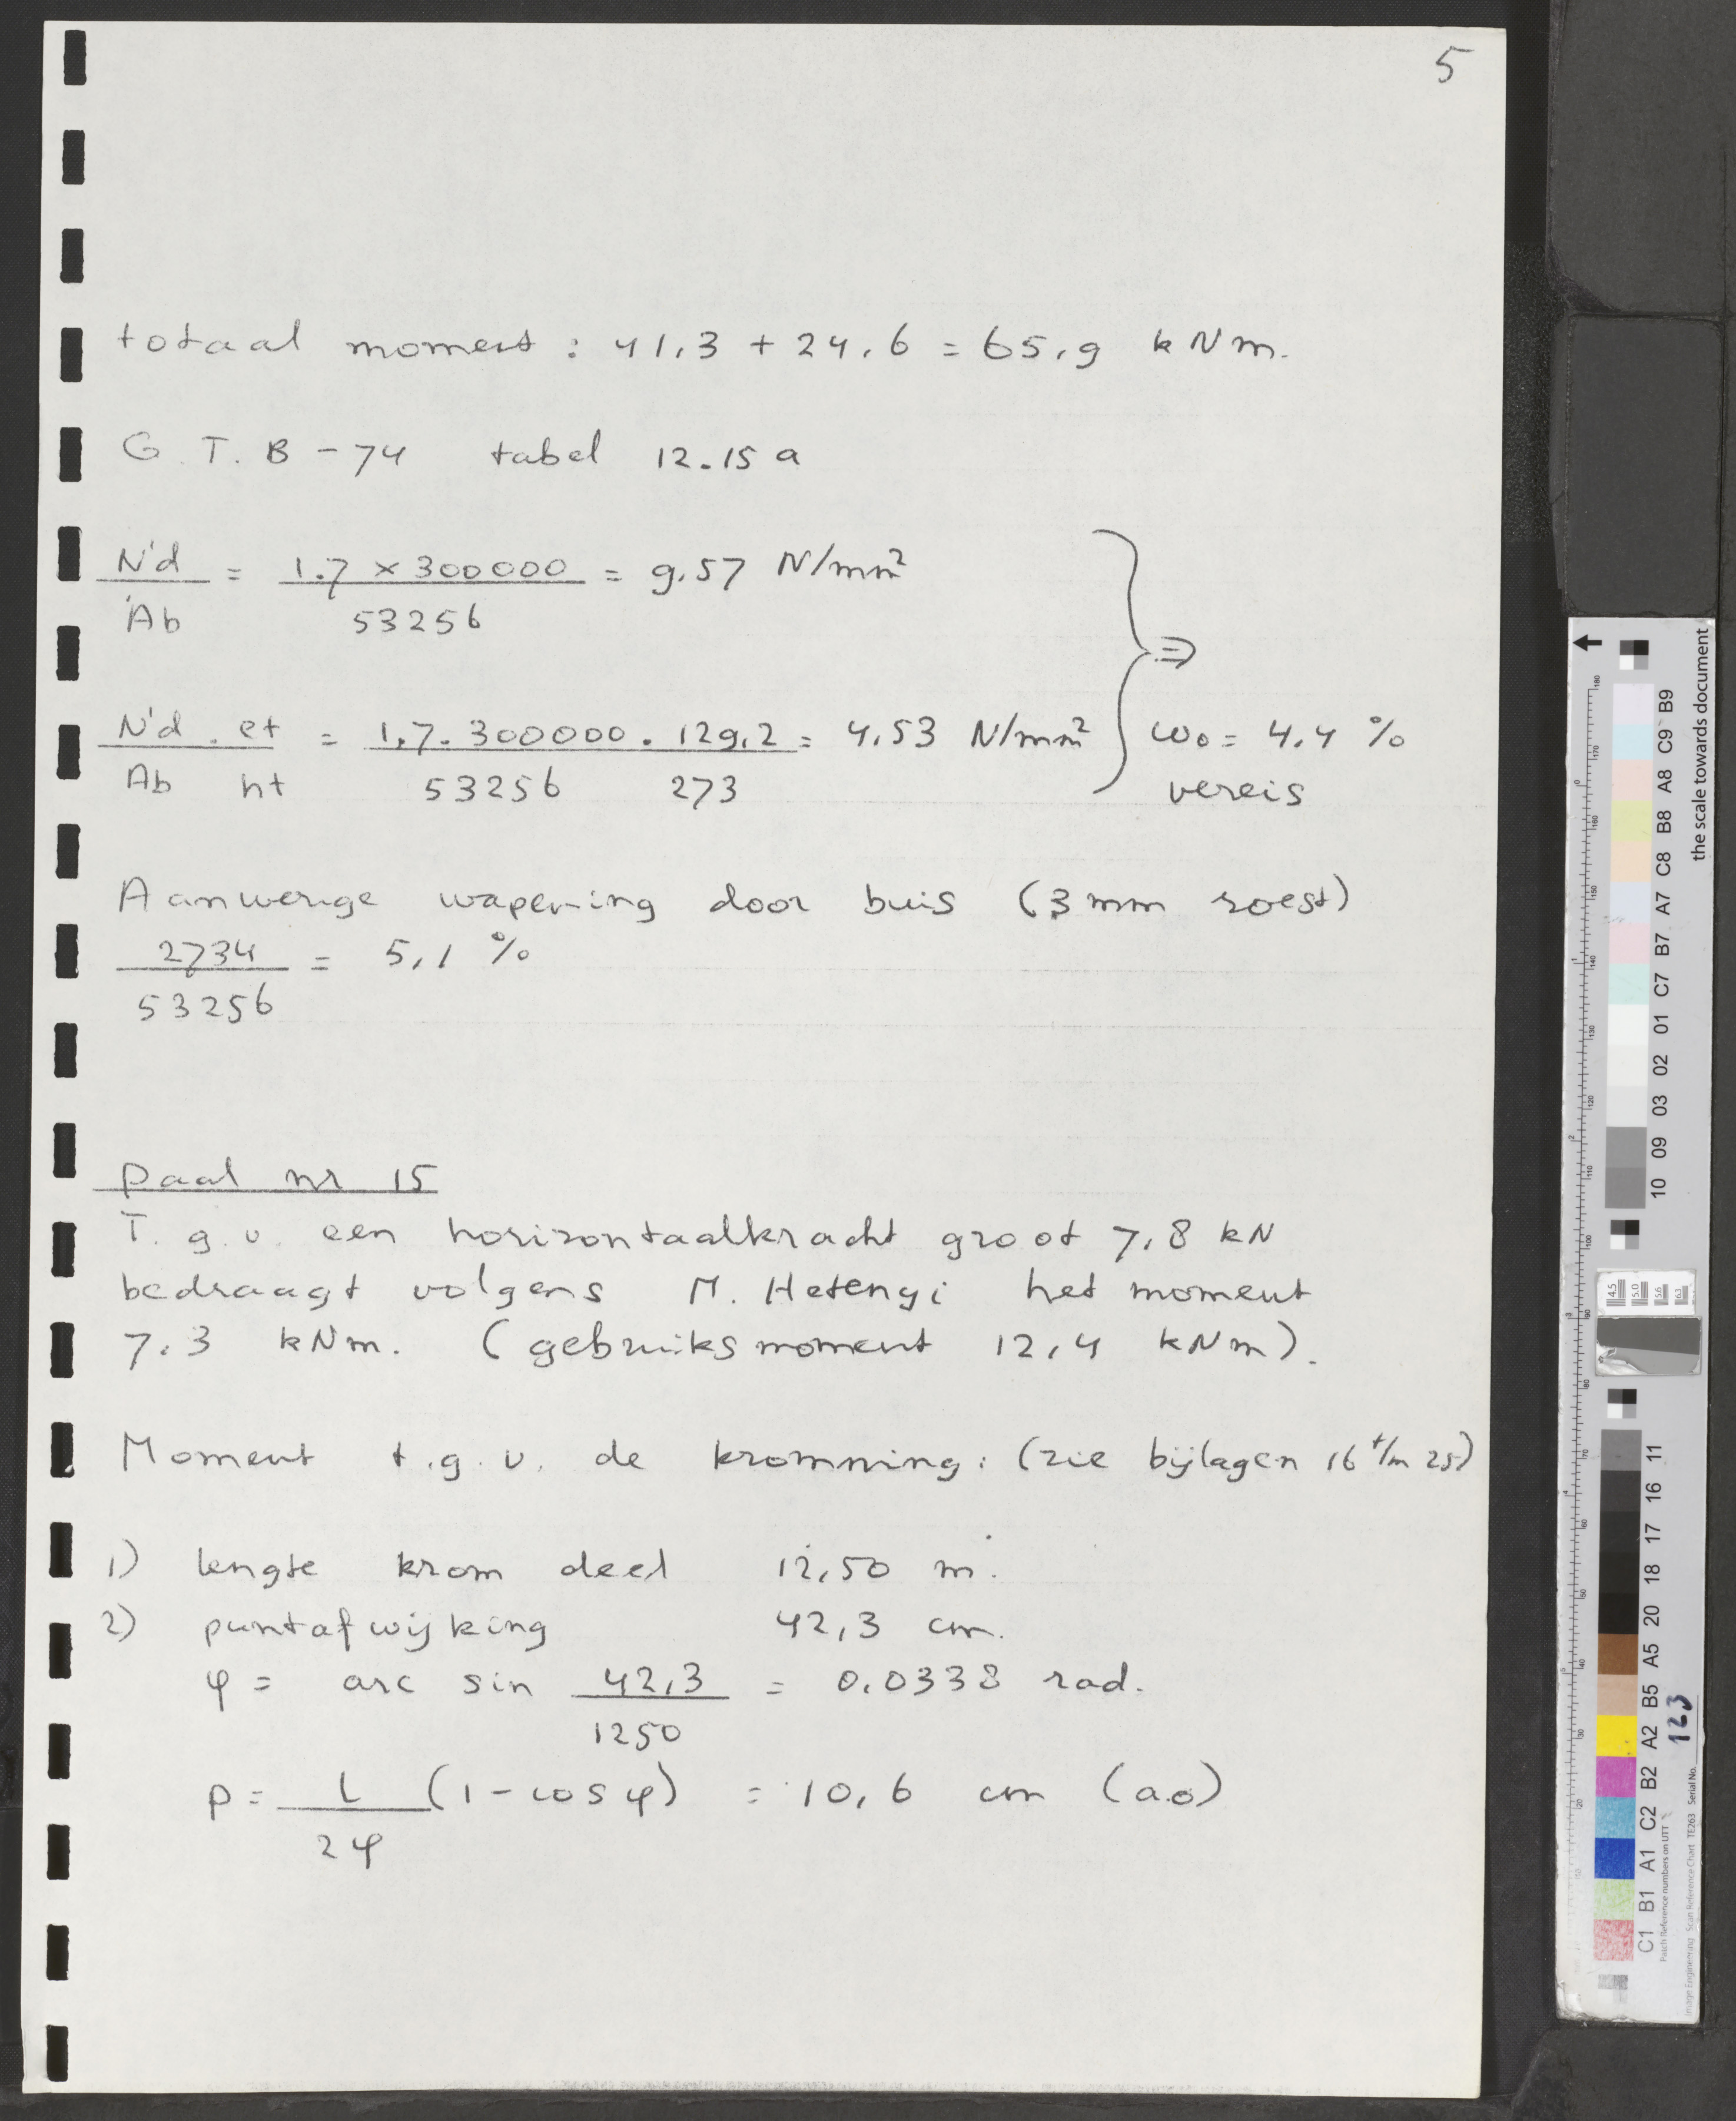 5
totaal moment : 41,3 + 24,6 = 65,9 kNm.
G.T.B-74 tabel 12.15a
N'd / Ab = 1.7 × 300000 / 53256 = 9,57 N/mm²
⇒
N'd . et / Ab ht = 1,7 . 300000 . 129,2 / 53256 273 = 4,53 N/mm² ω₀ = 4,4 %
vereis
Aanwezige wapening door buis (3 mm roest)
2734 / 53256 = 5,1 %
Paal nr 15
T.g.v. een horizontaalkracht groot 7,8 kN
bedraagt volgens M. Hetenyi het moment
7,3 kNm. (gebruiksmoment 12,4 kNm).
Moment t.g.v. de kromming: (zie bijlagen 16 t/m 25)
1) lengte krom deel 12,50 m.
2) puntafwijking 42,3 cm.
φ = arc sin 42,3 / 1250 = 0,0338 rad.
p = L / 2φ (1 - cos φ) = 10,6 cm (a.o)
the scale towards document
B9 C9 A8 B8 C8 A7 B7 C7 01 02 03 09 10
11 16 17 18 20 A5 B5 A2 B2 C2 A1 B1 C1
Patch Reference numbers on UTT
Image Engineering Scan Reference Chart TE263 Serial No. 123